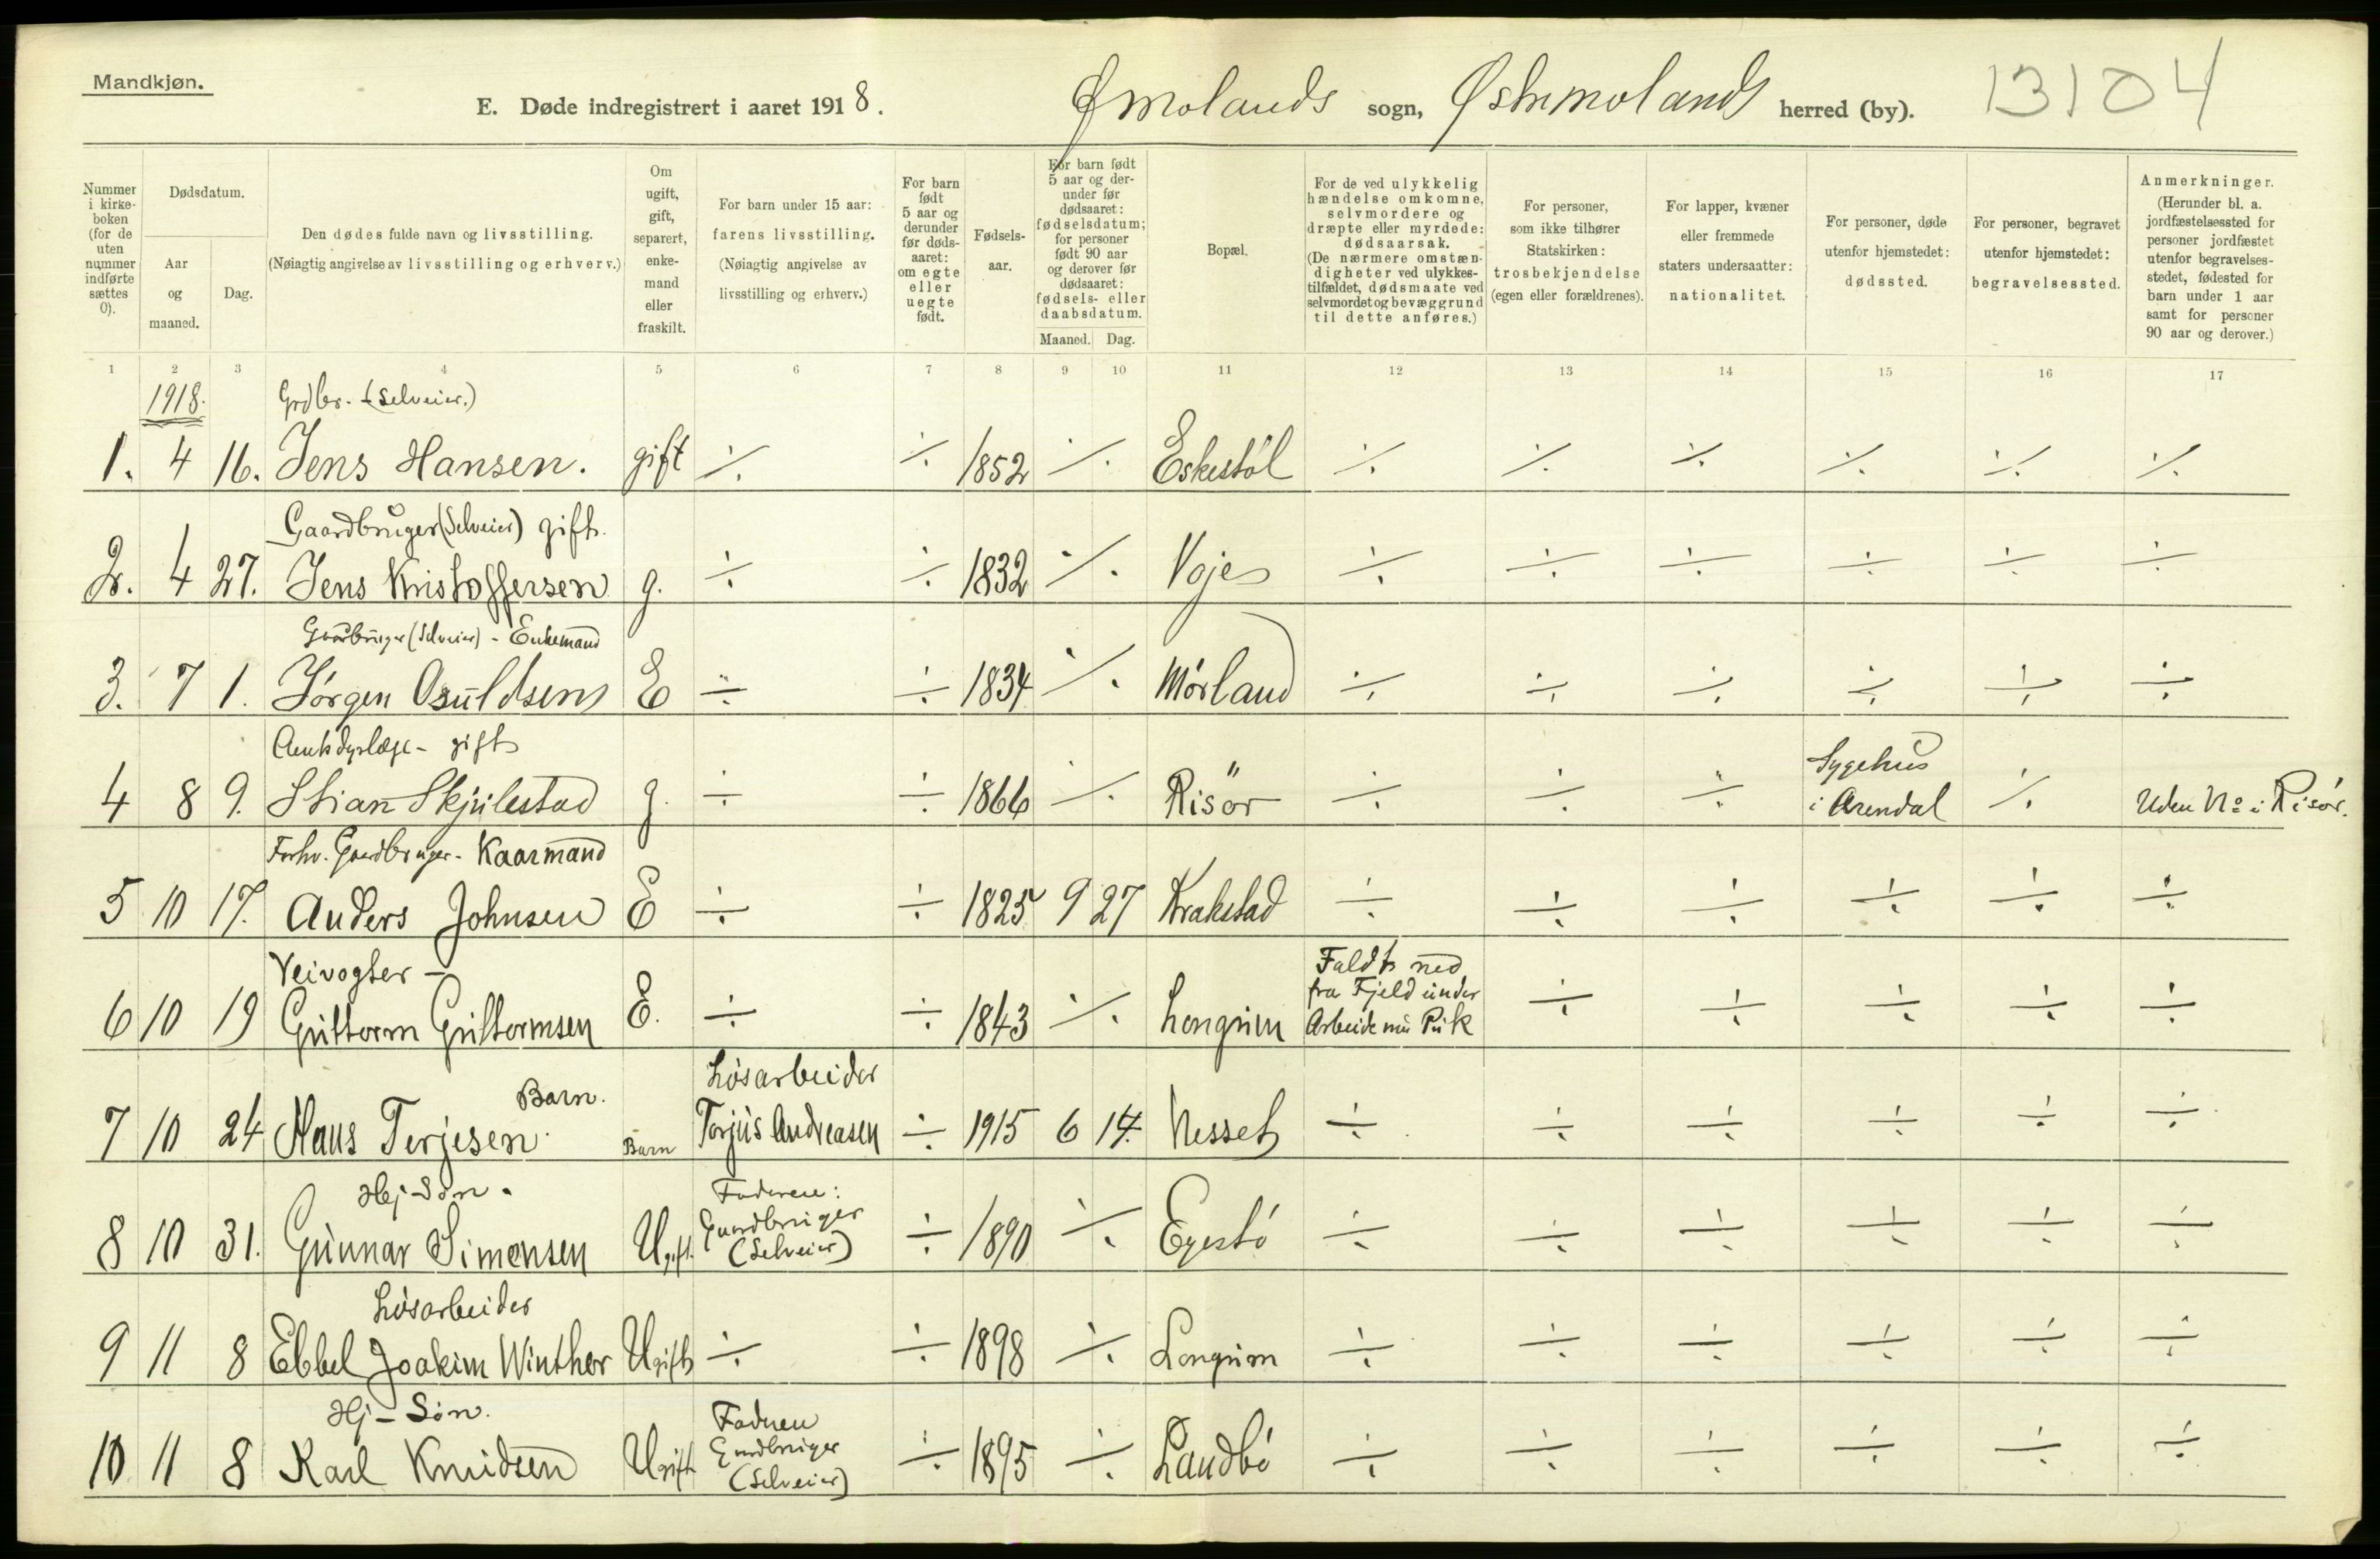 Mandkjøn.
E. Døde indregistrert i aaret 1918. Ømolands sogn, Østremolands herred (by). 13104
Nummer i kirkeboken (for de uten nummer indførte sættes 0).
Dødsdatum.
Aar og maaned.
Dag.
Den dødes fulde navn og livsstilling.
(Nøiagtig angivelse av livsstilling og erhverv.)
Om ugift, gift, separert, enkemand eller fraskilt.
For barn under 15 aar: farens livsstilling.
(Nøiagtig angivelse av livsstilling og erhverv.)
For barn født 5 aar og derunder før dødsaaret: om egte eller uegte født.
Fødselsaar.
For barn født 5 aar og derunder før dødsaaret: fødselsdatum; for personer født 90 aar og derover før dødsaaret: fødsels- eller daabsdatum.
Maaned. Dag.
Bopæl.
For de ved ulykkelig hændelse omkomne, selvmordere og dræpte eller myrdede: dødsaarsak.
(De nærmere omstændigheter ved ulykkestilfældet, dødsmaate ved selvmordet og bevæggrund til dette anføres.)
For personer, som ikke tilhører Statskirken: trosbekjendelse (egen eller forældrenes).
For lapper, kvæner eller fremmede staters undersaatter: nationalitet.
For personer, døde utenfor hjemstedet: dødssted.
For personer, begravet utenfor hjemstedet: begravelsessted.
Anmerkninger.
(Herunder bl. a. jordfæstelsessted for personer jordfæstet utenfor begravelsesstedet, fødested for barn under 1 aar samt for personer 90 aar og derover.)
1 2 3 4 5 6 7 8 9 10 11 12 13 14 15 16 17
1918. Grdbr. (Selveier.)
1. 4 16. Jens Hansen. gift ÷ ÷ 1852 ÷ Eskestøl ÷ ÷ ÷ ÷ ÷ ÷
Gaardbruger (Selveier) gift.
2. 4 27. Jens Kristoffersen g. ÷ ÷ 1832 ÷ Voje ÷ ÷ ÷ ÷ ÷ ÷
Gaardbruger (Selveier) - Enkemand
3. 7 1. Jørgen Osuldsen E ÷ ÷ 1834 ÷ Mørland ÷ ÷ ÷ ÷ ÷ ÷
Amtsdyrlæge - gift
4 8 9. Stian Skjulestad g. ÷ ÷ 1866 ÷ Risör ÷ ÷ ÷ Sygehus i Arendal ÷ Uden No i Risør.
Forhv. Gaardbruger - Kaarmand
5 10 17. Anders Johnsen E ÷ ÷ 1825 9 27 Krakstad ÷ ÷ ÷ ÷ ÷ ÷
Veivogter -
6 10 19 Guttorm Guttormsen E. ÷ ÷ 1843 ÷ Longum Faldt ned fra Fjeld under Arbeide m Puk ÷ ÷ ÷ ÷ ÷
Barn. Løsarbeider
7 10 24 Hans Terjesen. Barn Torjus Andreasen ÷ 1915 6 14. Nesset ÷ ÷ ÷ ÷ ÷ ÷
Hj-Søn. Faderen:
8 10 31. Gunnar Simonsen Ugift. Gaardbruger (Selveier) ÷ 1890 ÷ Egestø ÷ ÷ ÷ ÷ ÷ ÷
Løsarbeider
9 11 8 Ebbel Joakim Winther Ugift ÷ ÷ 1898 ÷ Longum ÷ ÷ ÷ ÷ ÷ ÷
Hj-Søn. Faderen
10 11 8 Karl Knudsen Ugift Gardbruger (Selveier) ÷ 1895 ÷ Landbø ÷ ÷ ÷ ÷ ÷ ÷